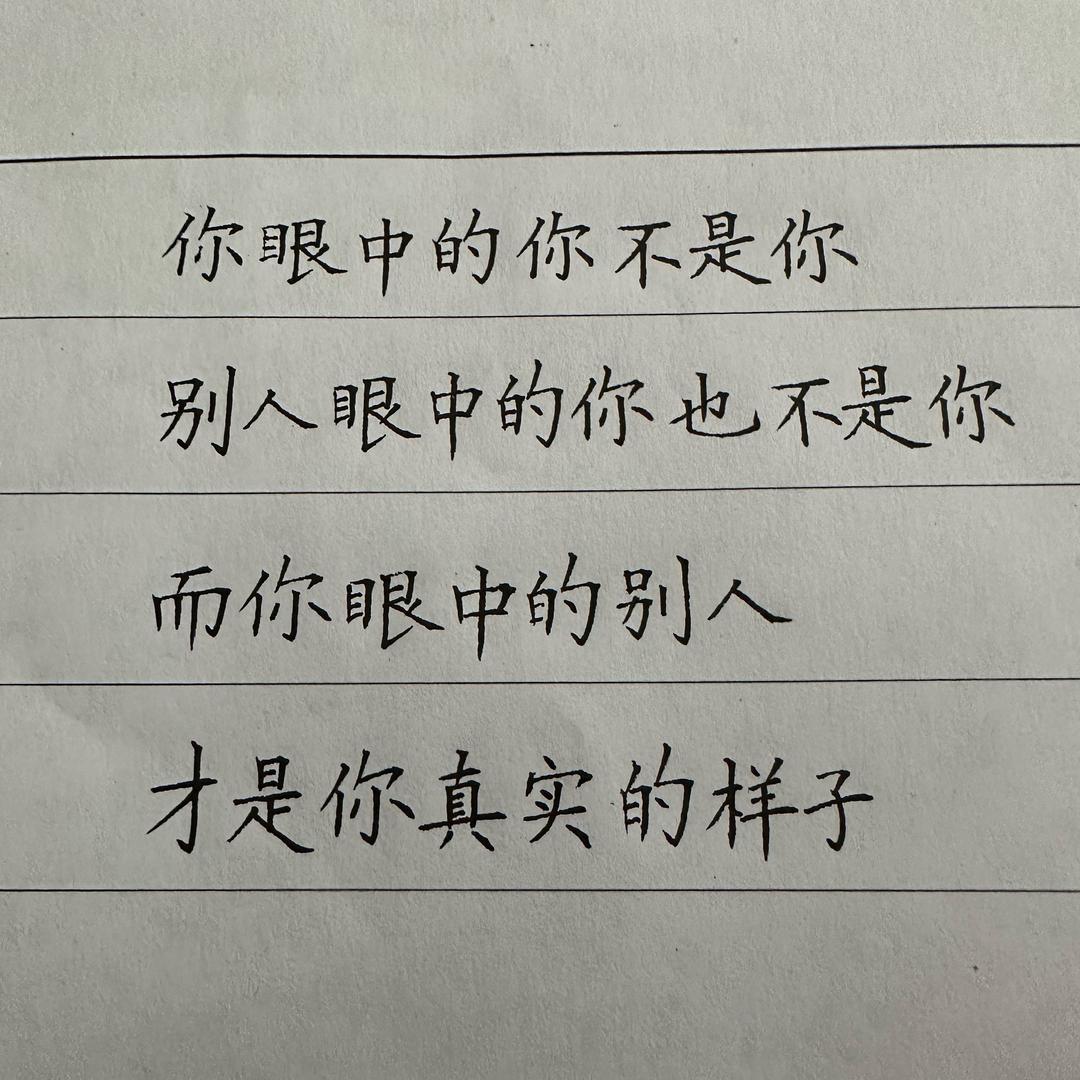 你眼中的你不是你
别人眼中的你也不是你
而你眼中的别人
才是你真实的样子